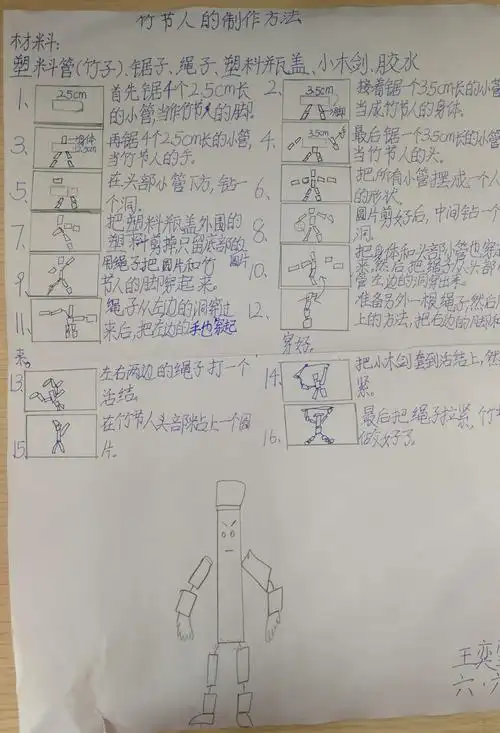 竹节人的制作方法
材料:
塑料管(竹子)、锯子、绳子、塑料瓶盖、小木剑、胶水
1、
2.5cm
首先锯4个2.5cm长
的小管,当作竹节人的脚.
2、
接着锯一个3.5cm长的小管
当成竹节人的身体.
3、
再锯4个2.5cm长的小管,
当竹节人的手.
4、
3.5cm
最后锯一个3.5cm长的小管
当竹节人的头.
5、
在头部小管下方,钻一
个洞.
6、
把所有小管摆成一个人
的形状.
7、
把塑料瓶盖外围的
塑料剪掉只留底部的
圆片
8、
圆片剪好后,中间钻一个
洞.
9、
用绳子把圆片和竹
节人的脚穿起来.
10、
把身体和头部小管也穿
来,然后把绳子从头部小
管左边的洞穿出来.
11、
绳子从左边的洞穿过
来后,把左边的手也穿起
来.
12、
准备另外一根绳子,然后
上的方法,把右边的脚和
穿好.
13、
左右两边的绳子打一个
活结.
14、
把小木剑套到活结上,然
紧.
15、
在竹节人头部贴上一个圆
片.
16、
最后把绳子拉紧,竹
做好了.
王奕
六·六